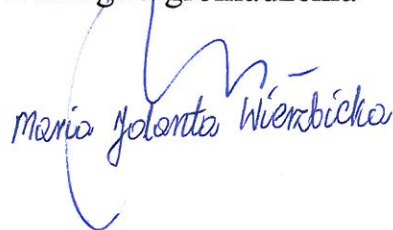 Maria Jolanta Wierzbicka